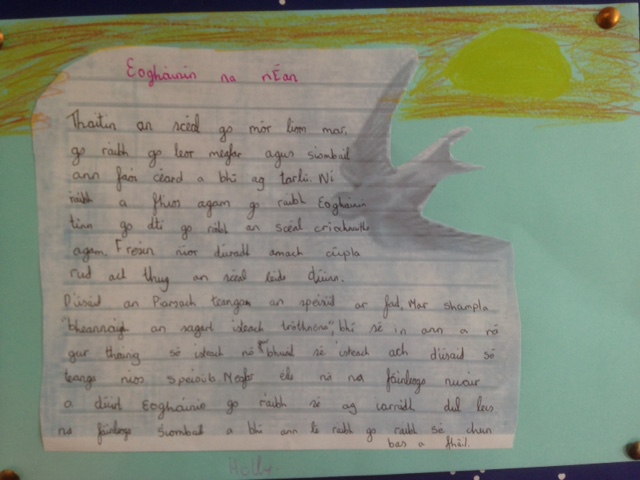 Eoghainín na nÉan
Thaitin an scéal go mór liom mar,
go raibh go leor megfar agus siombail
ann faoi céard a bhí ag tarlú. Ní
raibh a fhios agam go raibh Eoghainín
tinn go dtí go raibh an scéal críochnaithe
agam. Freisin níor dúradh amach cúpla
rud act thug an scéal leide dúinn.
D'úsáid an Piarsach teangan an speisúil ar fad. Mar shampla
"bheannaigh an sagart isteach tráthnóna", bhí sé in ann a rá
gur tháinig sé isteach nó bhuail sé isteach ach d'úsaid sé
teanga níos speisiúla. Megfar eile ná na fáinleoga nuair
a dúirt Eoghainín go raibh sé ag iarraidh dul leis
na fáinleoga siombail a bhí ann le raibh go raibh sé chun
bás a fháil.
Holly